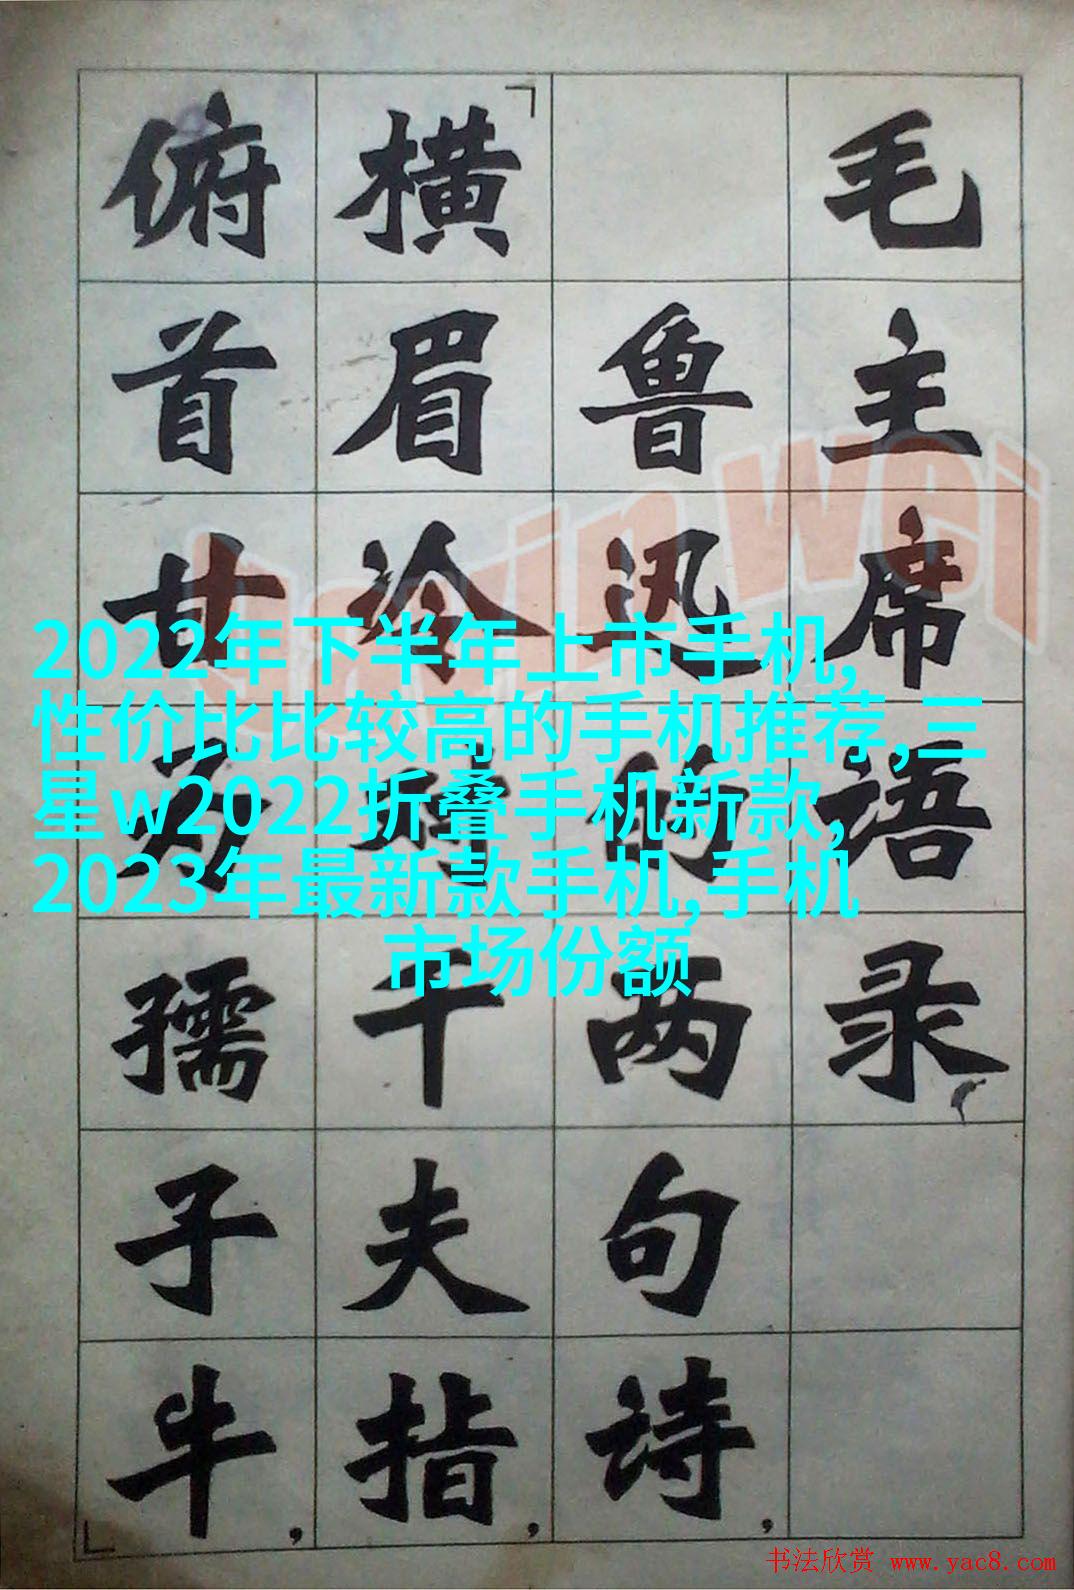 毛主席语录
鲁迅的两句诗，
「横眉冷对千夫指，
俯首甘为孺子牛，」
2022年下半年上市手机,
性价比比较高的手机推荐,三
星w2022折叠手机新款,
2023年最新款手机,手机
市场份额
书法欣赏 www.yac8.com